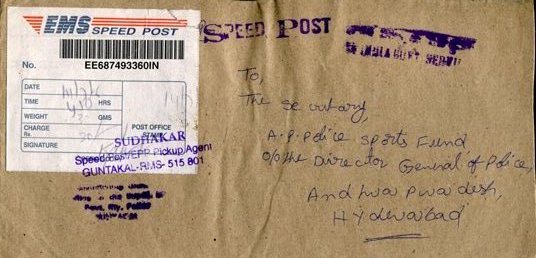 EMS SPEED POST
No. EE687493360IN
DATE
TIME HRS
WEIGHT GMS
CHARGE Rs.
SIGNATURE
POST OFFICE
STAMP
SUDHAKAR
Speed Post/EPP Pickup Agent
GUNTAKAL-RMS- 515 801
SPEED POST
INDIA GOVT SERVICE
To,
The Secretary,
A.P. Police Sports Fund
O/o the Director General of Police,
Andhra Pradesh,
Hyderabad